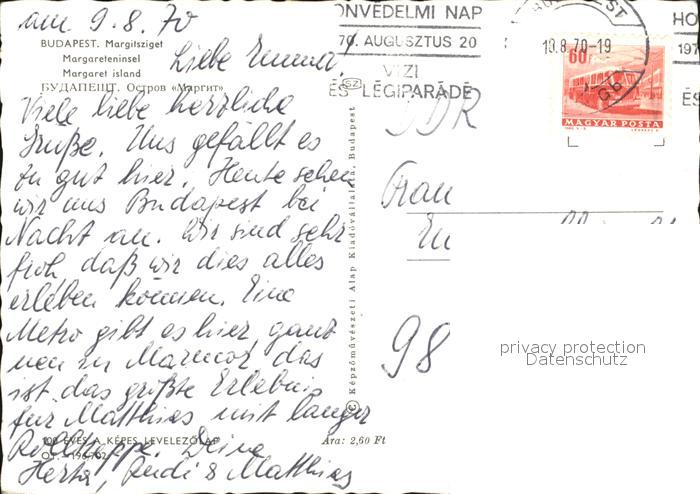 am 9.8.70
BUDAPEST. Margitsziget
Margareteninsel
Margaret island
БУДАПЕШТ. Остров «Маргит»
Liebe Emma,
Viele liebe herzliche
Grüße. Uns gefällt es
zu gut hier. Heute sehen
wir uns Budapest bei
Nacht an. Wir sind sehr
froh, daß wir dies alles
erleben können. Eine
Metro gibt es hier, ganz
neu in Marmor, das
ist das größte Erlebnis
für Matthias mit langer
Rolltreppe. Deine
Herta, Rudi & Matthias
100 ÉVES A KÉPES LEVELEZŐLAP
Ára: 2,60 Ft
© Képzőművészeti Alap Kiadóvállalata, Budapest
ONVÉDELMI NAP
70. AUGUSZTUS 20
VIZI
ÉS LÉGIPARÁDÉ
10.8.70-19
HO
197
ÉS
60f
MAGYAR POSTA
DDR
Frau
98
privacy protection
Datenschutz